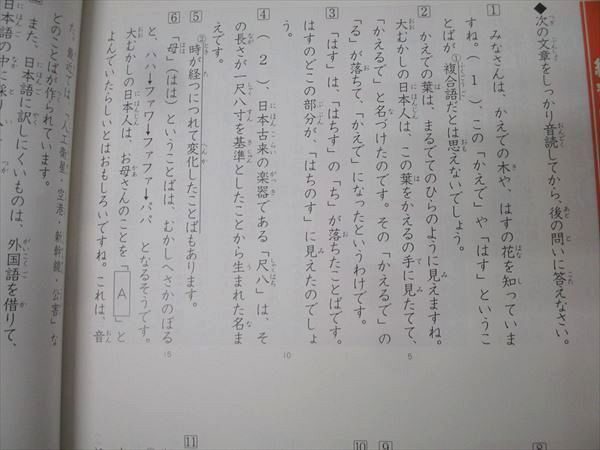 ◆次の文章をしっかり音読してから、後の問いに答えなさい。
1 みなさんは、かえでの木や、はすの花を知っていま
すね。(1)、この「かえで」や「はす」というこ
とばが①複合語だとは思えないでしょう。
2 かえでの葉は、まるでてのひらのように見えますね。
大むかしの日本人は、この葉をかえるの手に見たてて、
「かえるで」と名づけたのです。その「かえるで」の
「る」が落ちて、「かえで」になったというわけです。
3 「はす」は、「はちす」の「ち」が落ちたことばです。
はすのどこの部分が、「はちのす」に見えたのでしょ
う。
4 (2)、日本古来の楽器である「尺八」は、そ
の長さが一尺八寸を基準としたことから生まれた名ま
えです。
5 ②時が経つにつれて変化したことばもあります。
6 「母」(はは)ということばは、むかしへさかのぼる
と、ハハ→ファワ→ファファ→パパ となるそうです。
大むかしの日本人は、お母さんのことを「A」と
よんでいたらしいとはおもしろいですね。これは、音
た、最近では、「人工衛星・空港・新幹線・公害」な
どのことばが作られています。
また、日本語に訳しにくいものは、外国語を借りて、
日本語の中に
5
10
15
8
9
10
11